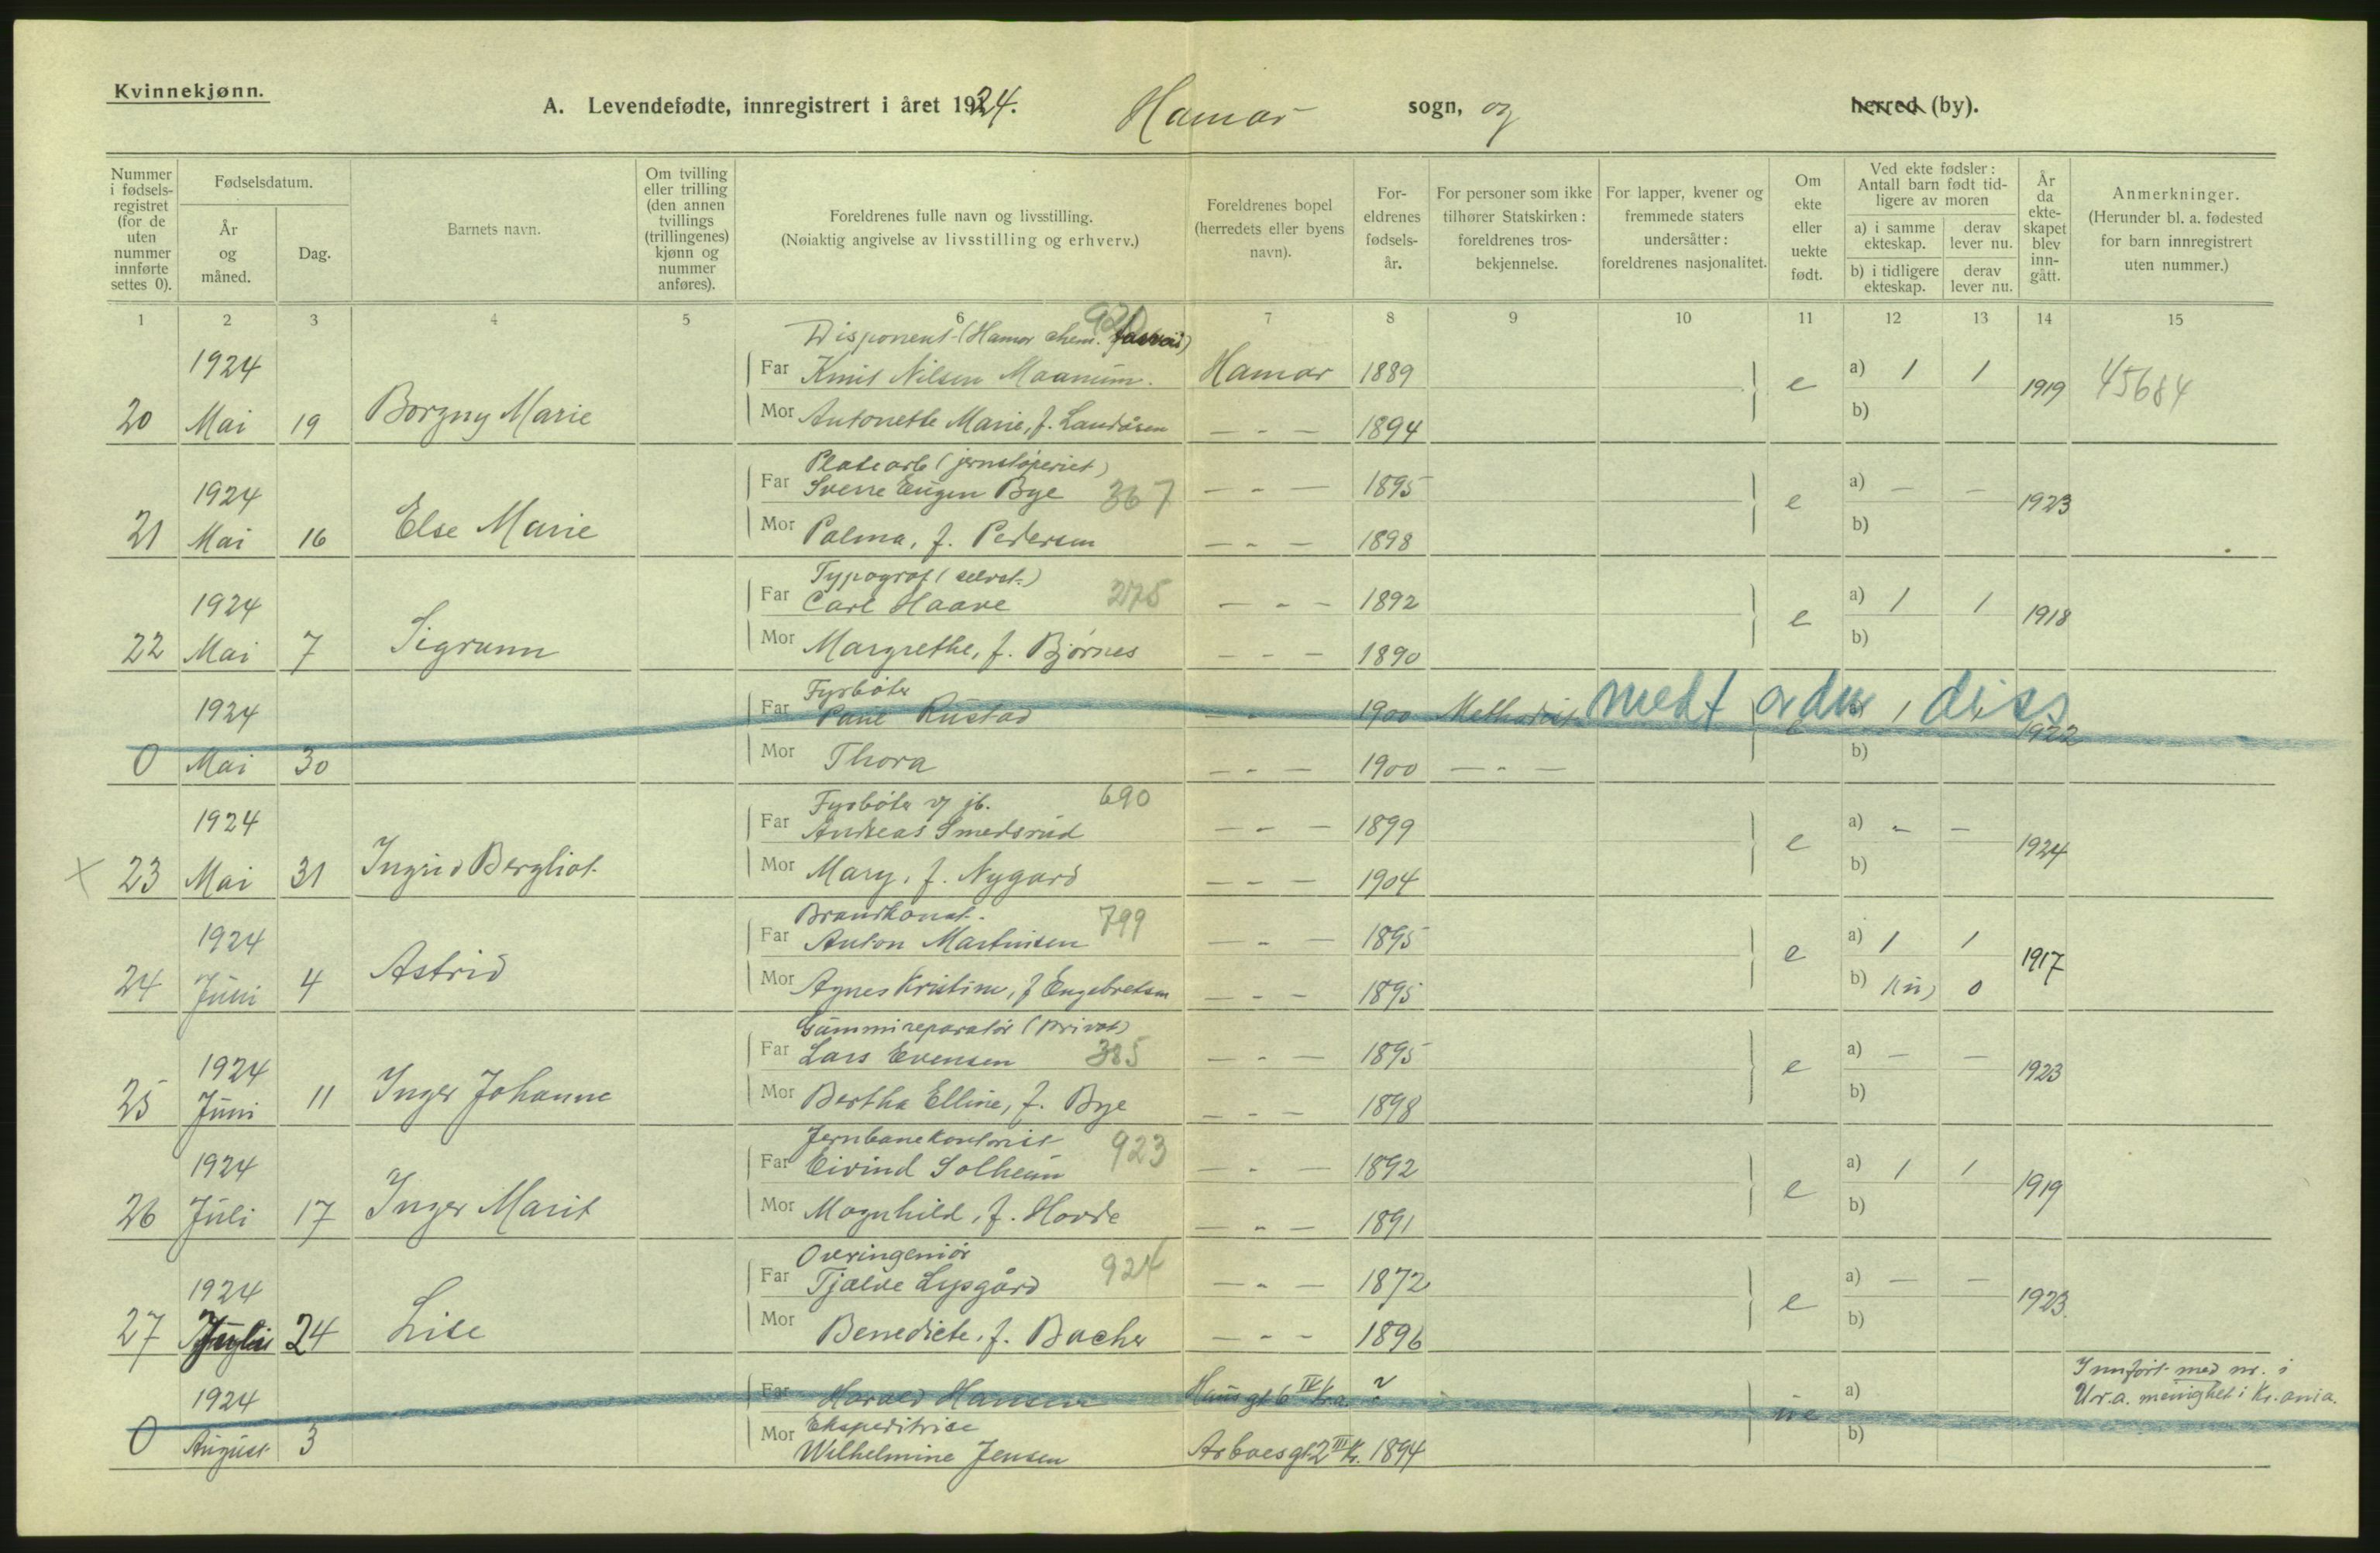 Kvinnekjønn.
A. Levendefødte, innregistrert i året 1924. Hamar sogn, og herred (by).
Nummer i fødsels- registret (for de uten nummer innførte settes 0).
Fødselsdatum.
År og måned.
Dag.
Barnets navn.
Om tvilling eller trilling (den annen tvillings (trillingenes) kjønn og nummer anføres).
Foreldrenes fulle navn og livsstilling.
(Nøiaktig angivelse av livsstilling og erhverv.)
Foreldrenes bopel (herredets eller byens navn).
For- eldrenes fødsels- år.
For personer som ikke tilhører Statskirken: foreldrenes tros- bekjennelse.
For lapper, kvener og fremmede staters undersåtter: foreldrenes nasjonalitet.
Om ekte eller uekte født.
Ved ekte fødsler: Antall barn født tid- ligere av moren
a) i samme ekteskap.
derav lever nu.
b) i tidligere ekteskap.
derav lever nu.
År da ekte- skapet blev inn- gått.
Anmerkninger.
(Herunder bl. a. fødested for barn innregistrert uten nummer.)
1 2 3 4 5 6 7 8 9 10 11 12 13 14 15
Disponent (Hamar chem.
1924 Far Knut Nilsen Maanum. Hamar 1889 e a) 1 1 1919 45684
20 Mai 19 Borgny Marie Mor Antonette Marie, f. Landåsen — - — 1894 b)
Platearb (jernstøperiet)
1924 Far Sverre Eugen Bye 367 — - — 1895 e a) — — 1923
21 Mai 16 Else Marie Mor Palma, f. Pedersen — - — 1898 b)
Typograf (selvst.)
1924 Far Carl Haave 275 — - — 1892 e a) 1 1 1918
22 Mai 7 Sigrunn Mor Margrethe, f. Bjørnes — - — 1890 b)
Fyrbøter
1924 Far Paul Rustad — - — 1900 Methodist medt and diss 1922
0 Mai 30 Mor Thora — - — 1900 — - — b)
Fyrbøter v/ jb. 690
1924 Far Andreas Smedsrud — - — 1899 e a) - — 1924
x 23 Mai 31 Ingrid Bergliot Mor Mary, f. Nygard — - — 1904 b)
Brandkonst. 799
1924 Far Anton Martinsen — - — 1895 e a) 1 1 1917
24 Juni 4 Astrid Mor Agnes Kristine, f Engebretsen — - — 1895 b) 1(u) 0
Gummireparatør (privat)
1924 Far Lars Evensen 385 — - — 1895 e a) — — 1923
25 Juni 11 Inger Johanne Mor Bertha Elline, f. Bye — - — 1898 b)
Jernbanekontorist 923
1924 Far Eivind Solheim — - — 1892 e a) 1 1 1919
26 Juli 17 Inger Marit Mor Magnhild, f. Hovde — - — 1891 b)
Overingeniør
1924 Far Tjalve Lysgård 924 — - — 1872 e a) — — 1923
27 Juli 24 Lise Mor Benedicte, f. Bacher — - — 1896 b)
1924 Far Harald Hansen Hausgt 6 IV Kr.a. ? ue a) Innført med nr. i Ur.a. menighet i Kr.ania.
0 August 3 Mor Ekspeditrise
Wilhelmine Jensen 2 III Kr. 1894 b)